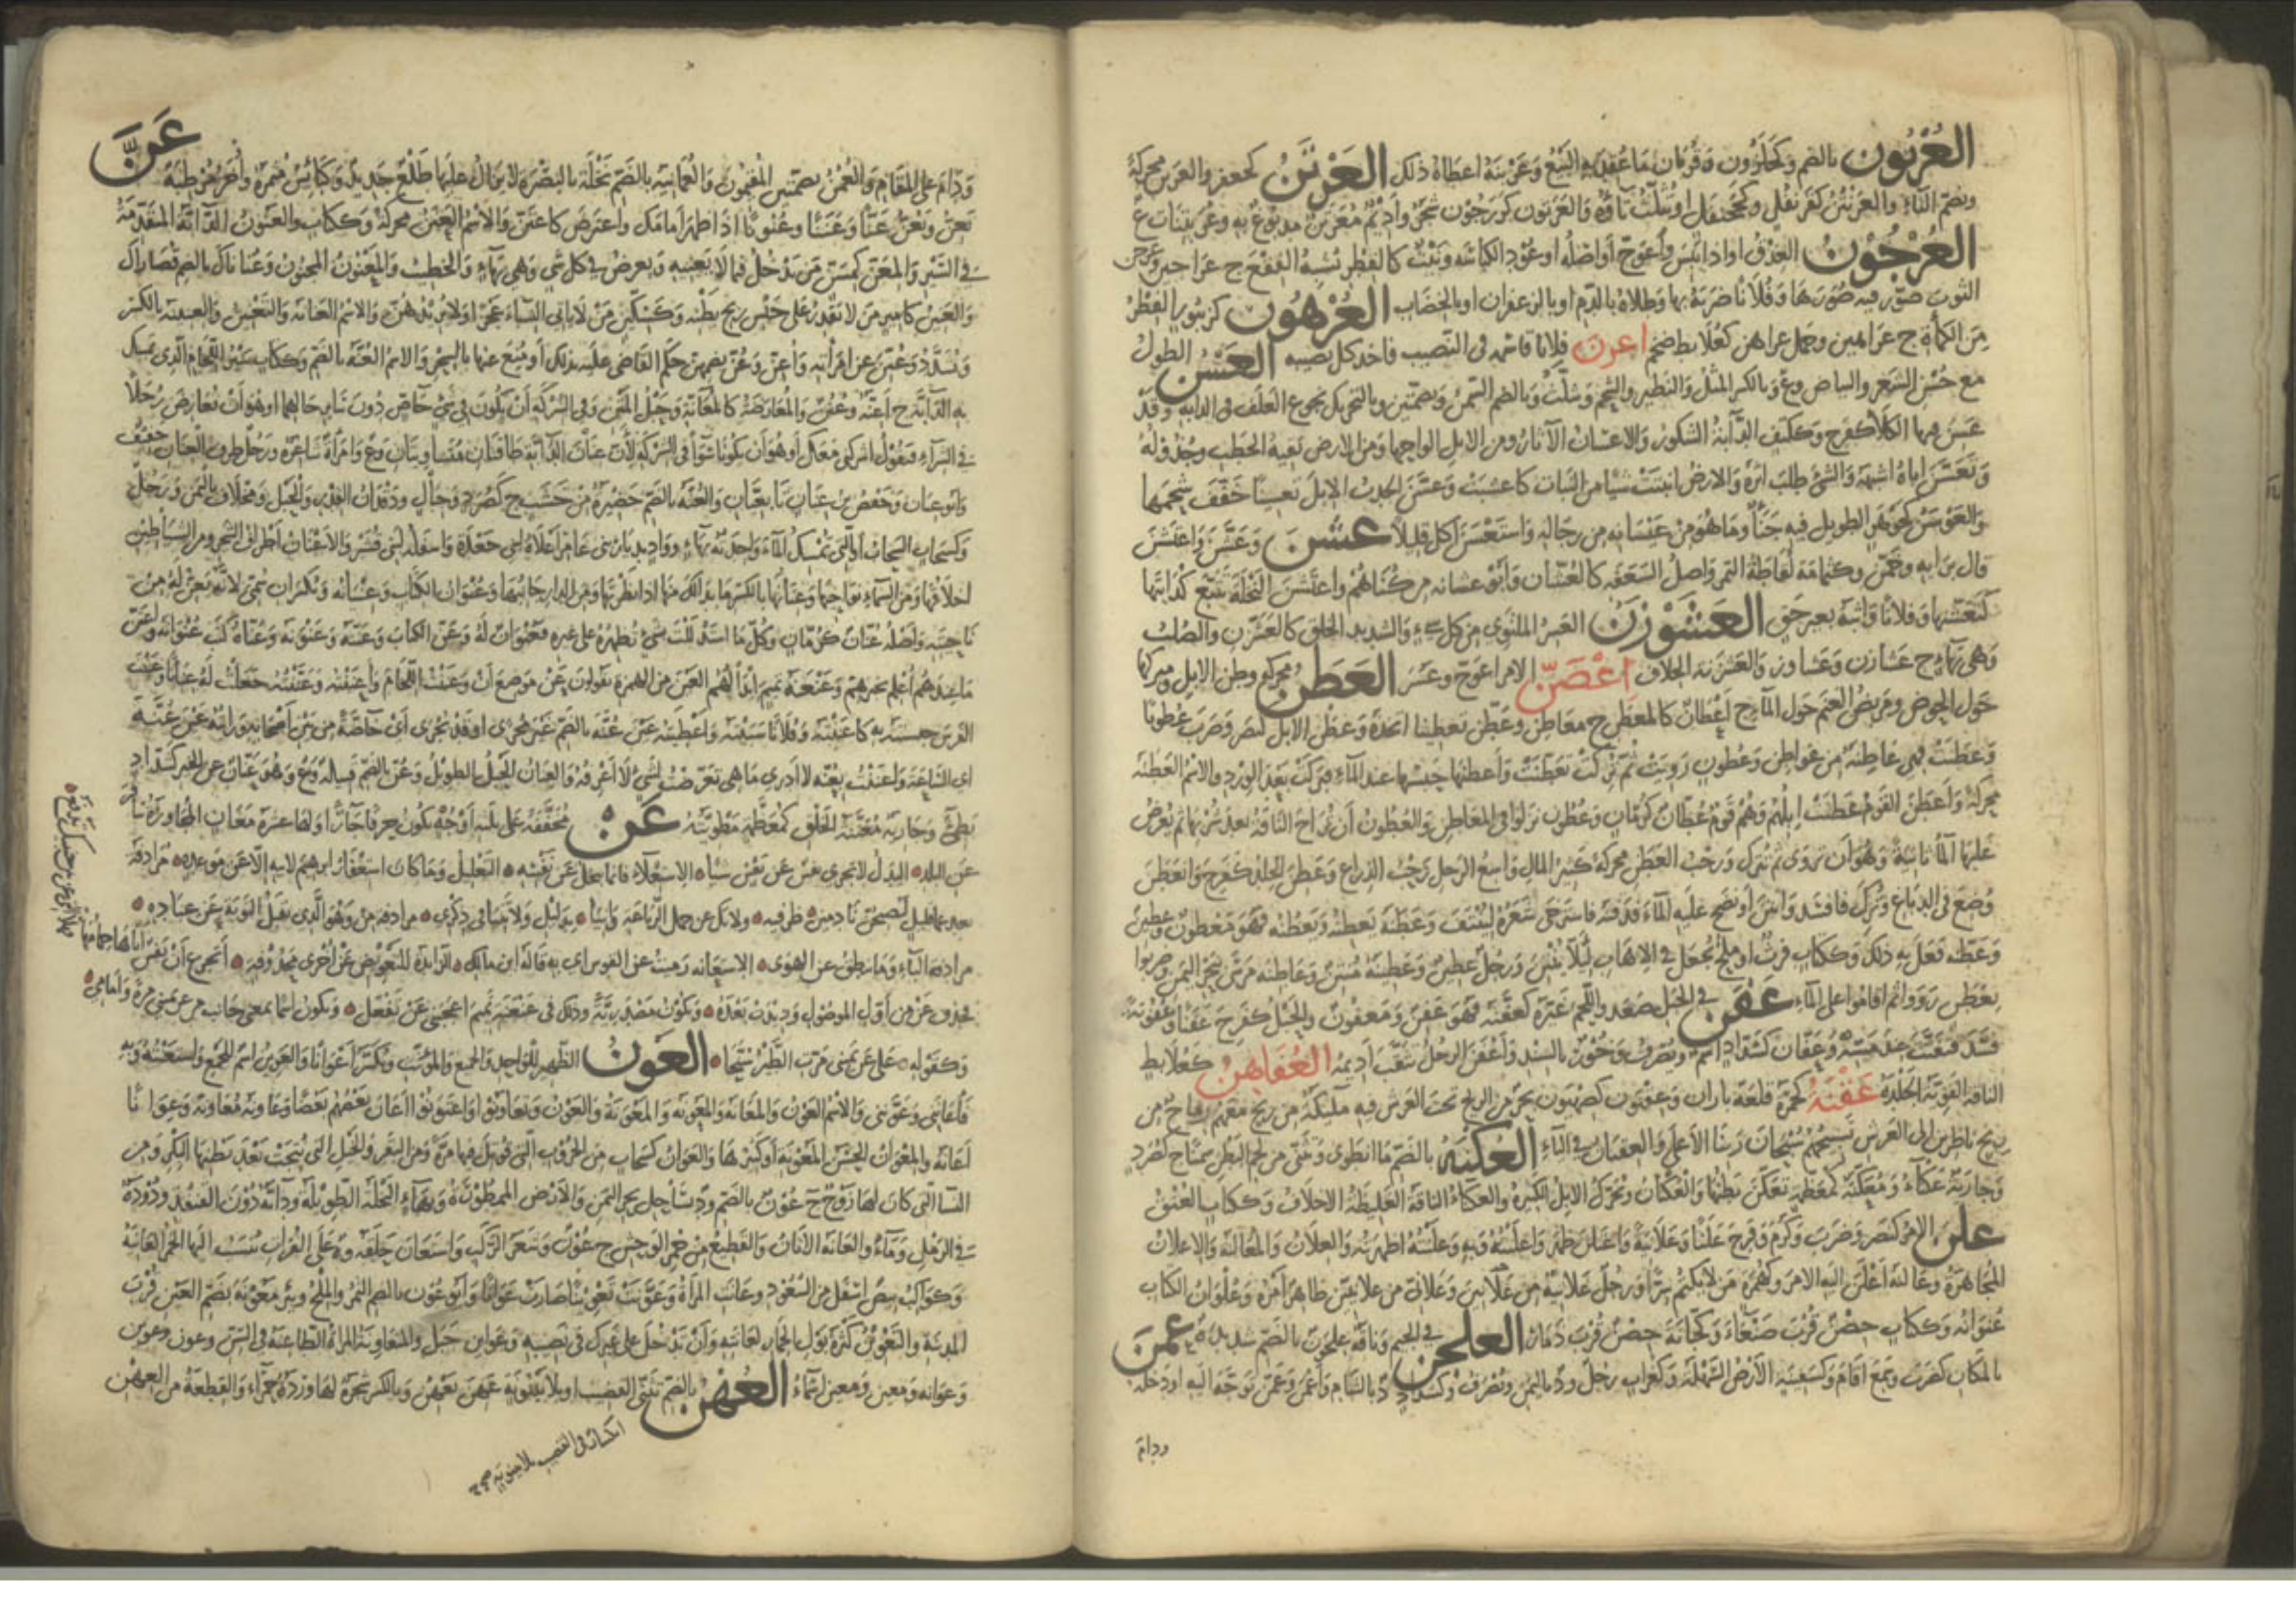 العُرْبُون بالضم وكحلزون وقربان ما عُقِدَ به البَيْعُ وعَرْبَنَهُ اعطاهُ ذلك العَرْتَنُ كجعفر والعرتن محركة
وبضم التاء والعَرَنْتُنُ كقرنفل وكجحنفل او تثلث تاؤه والعرتون كزرجون شجر واديم مُعَرْتَنٌ مدبوغ به وعُرَيْتِنات ع
العُرْجُونُ العذق او اذا يبس واعوج او اصله او عود الكباسة ونبت كالفطر يشبه الفقع ج عراجين وعرجن
الثوب صوّر فيه صُوَرَها وفلانا ضربه بها وطلاه بالدم او بالزعفران او بالخضاب العُرْهُون كزنبور الفطر
من الكمأة ج عراهين وجمل عراهن كعلابط ضخم اعرن فلانا قاسمه في النصيب فاخذ كل نصيبه العَسْنُ الطول
مع حسن الشعر والبياض وع وبالكسر المثل والنظير والشحم ويثلث وبالضم السمن وبضمتين وبالتحريك نجوع العلف في الدابة وقد
عسن فيها الكلأ كفرح وككتف الدابة الشكور والاعسان الآثار ومن الابل الواحها ومن الارض بقية الحطب وجذوله
وتعسن اباه اشبهه والشئ طلب اثره والارض انبتت شيئا من النبات كاعسنت وعسن الجدب الابل تعسينا خفف شحمها
والعوسن كجوهر الطويل فيه جنأ وما هو من عيسانه من رجاله واستعسن اكل قليلا عَشَنَ وعَشَّنَ واعتشن
قال برأيه وخمن وكثمامة لقاطة التمر واصل السعفة كالعشان وابو عشانة من كناهم واعتشن النخلة تتبع كرابتها
كتعشنها وفلانا واثبه بغير حق العَشَوْزَنُ العسر الملتوي من كل شيء والشديد الخلق كالعشزن والصلب
وهي بهاء ج عشازن وعشاوز والعشزنة الخلاف اعْصَنّ الامر اعوج وعسر العَطَنُ محركة وطن الابل ومبركها
حول الحوض ومربض الغنم حول الماء ج اعطان كالمعطن ج معاطن وعطن تعطينا اتخذه وعطن الابل كنصر وضرب عطونا
وعطنت فهي عاطنة من عواطن وعطون رويت ثم بركت كعطنت واعطنها حبسها عند الماء فبركت بعد الورد والاسم العطنة
محركة واعطن القوم عطنت ابلهم وهم قوم عُطّان كرمان وعطون نزلوا في المعاطن والعطون ان تراح الناقة بعد شربها ثم يعرض
عليها الماء ثانية وهو ان تروى ثم تترك ورحب العطن محركة كثير المال واسع الرحل رحب الذراع وعطن الجلد كفرح وانعطن
وضع في الدباغ وترك فافسد وانتن او نضح عليه الماء فدفنه فاسترخى شعره لينتف وعطنه يعطنه ويعطنه فهو معطون وعطين
وعطنه فعل به ذلك وككتاب فرث او ملح يجعل في الاهاب ليلا ينتن ورجل عطين وعطينة منتن وعاطنة مرسى ببحر اليمن وضربوا
بعطن رووا ثم اقاموا على الماء عَفَنَ في الجبل صعد واللحم غيره كعفنه فهو عفن ومعفون والحبل كفرح عفنا وعفونة
فسد فتفتت عند مسه وعفان كشداد اسم ويصرف وحورن بالسند واعفن الرجل نقب اديمه العُفَاهِنُ كعلابط
الناقة القوية الجلدة عَقْنَةُ كحمزة قلعة باران وعقيون كصهيون بحر من الريح تحت العرش فيه مليكة من ريح معهم رماح من
ريح ناظرين الى العرش تسبيحهم سبحان ربنا الأعلى والعقيان في الياء العُكْنَةُ بالضم ما انطوى وتثنى من لحم البطن سمنا ج كصرد
وجارية عكناء ومعكنة كمعظمة تعكن بطنها والعكنان ويحرك الابل الكثيرة والعكناء الناقة الغليظة الاخلاف وككتاب العنق
عَلَنَ الامر كنصر وضرب وكرم وفرح علنا وعلانية واعتلن ظهر واعلنته وبه وعلنته اظهرته والعلان والمعالنة والاعلان
المجاهرة وعالنه اعلن اليه الامر وكهمزة من لا يكتم سرا ورجل علانية من علانين وعلاني من علانيين ظاهر امره وعلوان الكتاب
عنوانه وككتاب حصن قرب صنعاء وكجبانة حصن قرب ذمار العلجن في الجيم وناقة علجون بالضم شديدة عمن
بالمكان كضرب وسمع اقام وكسفينة الارض السهلة وكغراب رجل ود باليمن ويصرف وكشداد د بالشام واعمن وعمن توجه اليه او دخله
ودام
عَنَّ
ودام على المقام والعُمُنُ بضمتين المقيمون والعمانية بالضم نخلة بالبصرة لا يزال عليها طلع جديد وكبائس مثمرة وأخر مُرْطِبَة
يعن ويعن عنا وعننا وعنونا اذا ظهر امامك واعترض كاعتن والاسم العنن محركة وككتاب والعنون الدابة المتقدمة
في السير والمعن كمسن من يدخل فيما لا يعنيه ويعرض في كل شئ وهي بهاء والخطيب والمعنون المجنون وعناناك بالضم قصاراك
والعنين كامير من لا يقدر على حبس ريح بطنه وكسكين من لا ياتي النساء عجزا او لا يريدهن والاسم العنانة والتعنين والعنينة بالكسر
وتشدد وعنن عن امرأته وأعن وعن بضمهن حكم القاضي عليه بذلك او منع عنها بالسحر والاسم العنة بالضم وككتاب سير اللجام الذي تمسك
به الدابة ج اعنة وعنن والمعارضة كالمعانة وحبل المتن وفي الشركة ان يكون في شئ خاص دون سائر مالهما او هو ان تعارض رجلا
في الشراء فتقول اشركني معك او هو ان يكونا سواء في الشركة لأن عنان الدابة طاقتان متساويتان وع وامرأة شاعرة ورجل طرف العنان خفيف
وابو عنان وحفص بن عنان تابعيان والعنة بالضم حظيرة من خشب ج كصرد وجبال ودقدان القدر والحبل ومخلاف باليمن ورجل
وكسحاب السحاب او التي تمسك الماء واحدته بهاء وواد بديار بني عامر اعلاه لبني جعدة واسفله لبني قشير والاعنان اطراف الشجر ومن الشياطين
اخلاقها ومن السماء نواحيها وعنانها بالكسر ما بدا لك منها اذا نظرتها ومن الدار جانبها وعنوان الكتاب وعنيانه ويكسران سمي لانه يعن له من
ناحيته واصله عنان كرمان وكل ما استدللت بشئ تظهره على غيره فعنوان له وعن الكتاب وعننه وعنونه وعناه كتب عنوانه واعتن
ما عندهم اعلم بخبرهم وعنعنة تميم ابدالهم العين من الهمزة يقولون عن موضع ان وعننت اللجام واعننته وعننته جعلت له عنانا وعننت
الفرس حبسته به كاعننته وفلانا سببته واعطيته عين عنة بالضم غير مجرى او قد يجرى اي خاصة من بين اصحابه ورايته عين عنة
اي الساعة واعننت بعنة لا ادري ما هي تعرضت لشئ لا اعرفه والعنان الحبل الطويل وعن بالضم قبيلة وع وهو عنان عن الخير كشداد
بطئ وجارية معننة الخلق كمعظمة مطويته عَنْ مخففة على ثلثة اوجه تكون حرفا جارا ولها عشرة معان المجاوزة سافر
عن البلد البدل لا تجزي نفس عن نفس شيا الاستعلاء فانما يبخل عن نفسه التعليل وما كان استغفار ابرهيم لابيه الا عن موعدة مرادفة
بعد عما قليل ليصبحن نادمين ظرفية ولا تك عن حمل الرباعة وانيا بدليل ولا تنيا في ذكري مرادفة من وهو الذي يقبل التوبة عن عباده
مرادفة الباء وما ينطق عن الهوى الاستعانة رميت عن القوس اي به قاله ابن مالك الزائدة للتعويض عن اخرى محذوفة اتجزع ان نفس اتاها حمامها
فهلا التي عن بين جنبيك تدفع
فحذف عن من اول الموصول وزيدت بعده وتكون مصدرية وذلك في عنعنة تميم اعجبني عن تفعل وتكون اسما بمعنى جانب من عن يميني مرة وامامي
وكقوله على عن يميني مرت الطير سنحا العَون الظهير للواحد والجمع والمؤنث ويكسر اعوانا والعوين اسم للجمع واستعنته وبه
فأعانني وعونني والاسم العون والمعانة والمعونة والمعونة والعون وتعاونوا واعتونوا اعان بعضهم بعضا وعاونه معاونة وعوانا
اعانه والمعوان الحسن المعونة او كثيرها والعوان كسحاب من الحروب التي قوتل فيها مرة ومن البقر والخيل التي نتجت بعد بطنها البكر ومن
النسا التي كان لها زوج ج عون بالضم ود بساحل بحر اليمن والارض الممطورة وبهاء النخلة الطويلة ودابة دون القنفذ ودودة
في الرمل وماء والعانة الاتان والقطيع من حمر الوحش ج عون وشعر الركب واستعان حلقه وة على الفرات ينسب اليها الخمر العانية
وكواكب بيض اسفل من السعود وعانت المرأة وعونت تعوينا صارت عوانا وابو عون بالضم التمر والملح وبئر معونة بضم العين قرب
المدينة والتعوين كثرة بوك الحمار لعانته وان تدخل على غيرك في نصيبه وعوائن جبل والمتعاونة المرأة الطاعنة في السن وعون وعوين
وعوانة ومعين ومعين اسماء العُهْنَةُ بالضم تثني القضيب او بلا بينونة عهن يعهن وبالكسر شجرة لها وردة حمراء والقطعة من العهن
انكسار في القضيب بلا بينونة صح